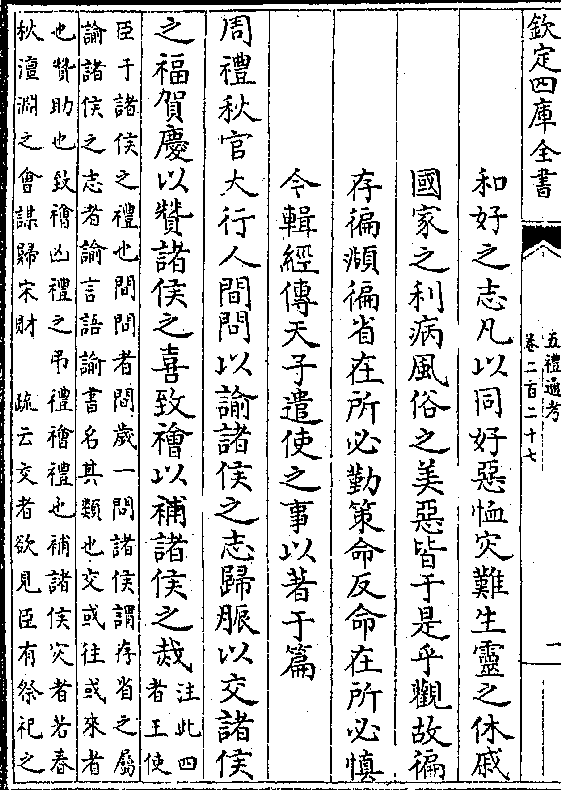 欽定四庫全書
五禮通考
卷二百二十七
一
和好之志凡以同好惡恤災難生靈之休戚
國家之利病風俗之美惡皆于是乎觀故徧
存徧頫徧省在所必勤策命反命在所必慎
今輯經傳天子遣使之事以著于篇
周禮秋官大行人間問以諭諸侯之志歸脤以交諸侯
之福賀慶以贊諸侯之喜致禬以補諸侯之烖
注此四
者王使
臣于諸侯之禮也間問者間歲一問諸侯謂存省之屬
諭諸侯之志者諭言語諭書名其類也交或往或來者
也贊助也致禬凶禮之弔禮禬禮也補諸侯災者若春
秋澶淵之會謀歸宋財　疏云交者欲見臣有祭祀之